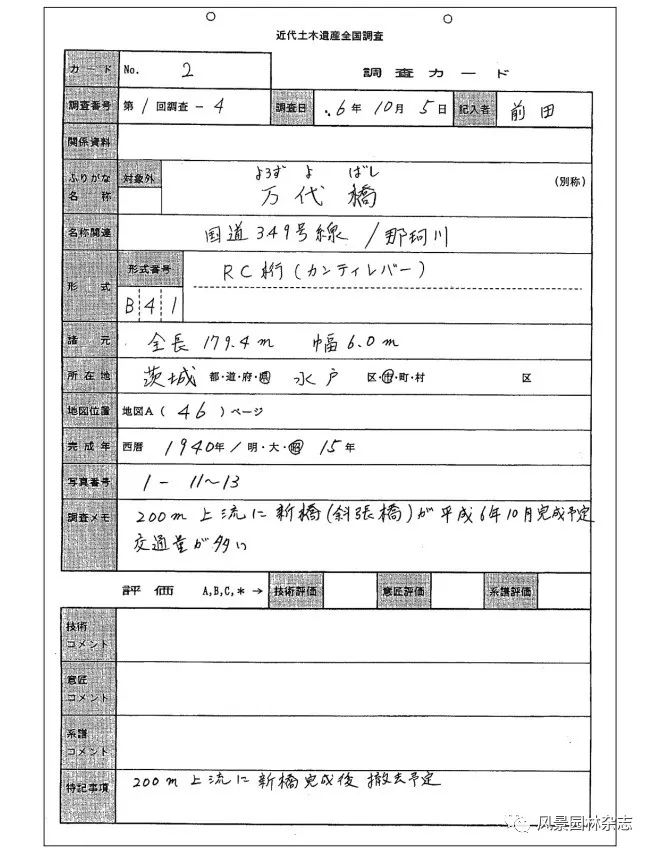 近代土木遺産全国調査
カード No. 2 調査カード
調査番号 第1回調査-4 調査日 .6年10月5日 記入者 前田
関係資料
よろず よ ばし
ふりがな 名称 対象外 万代橋 (別称)
名称関連 国道349号線/那珂川
形式 形式番号 RC桁(カンティレバー)
B41
諸元 全長179.4m 幅6.0m
所在地 茨城 都・道・府・県 水戸 区・市・町・村 区
地図位置 地図A(46)ページ
完成年 西暦 1940年/明・大・昭 15年
写真番号 1-11~13
調査メモ 200m上流に新橋(斜張橋)が平成6年10月完成予定
交通量が多い
評価 A,B,C,*→ 技術評価 意匠評価 系譜評価
技術
コメント
意匠
コメント
系譜
コメント
特記事項 200m上流に新橋完成後撤去予定
风景园林杂志